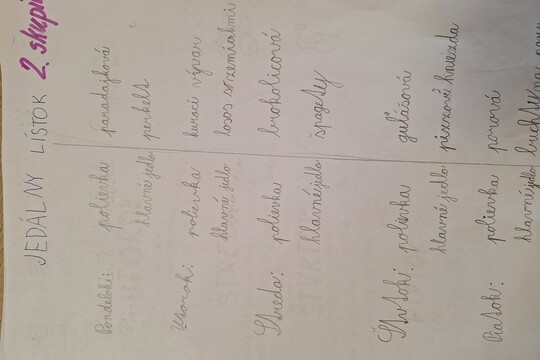 JEDÁLNY LÍSTOK 2. skupi
Pondelok: polievka paradajková
hlavné jedlo perkelt
Utorok: polievka kurací vývar
hlavné jedlo losos so zemiakmi
Streda: polievka brokolicová
hlavné jedlo špagety
Štvrtok: polievka gulášová
hlavné jedlo pizzové hniezda
Piatok: polievka pórová
hlavné jedlo buchty na